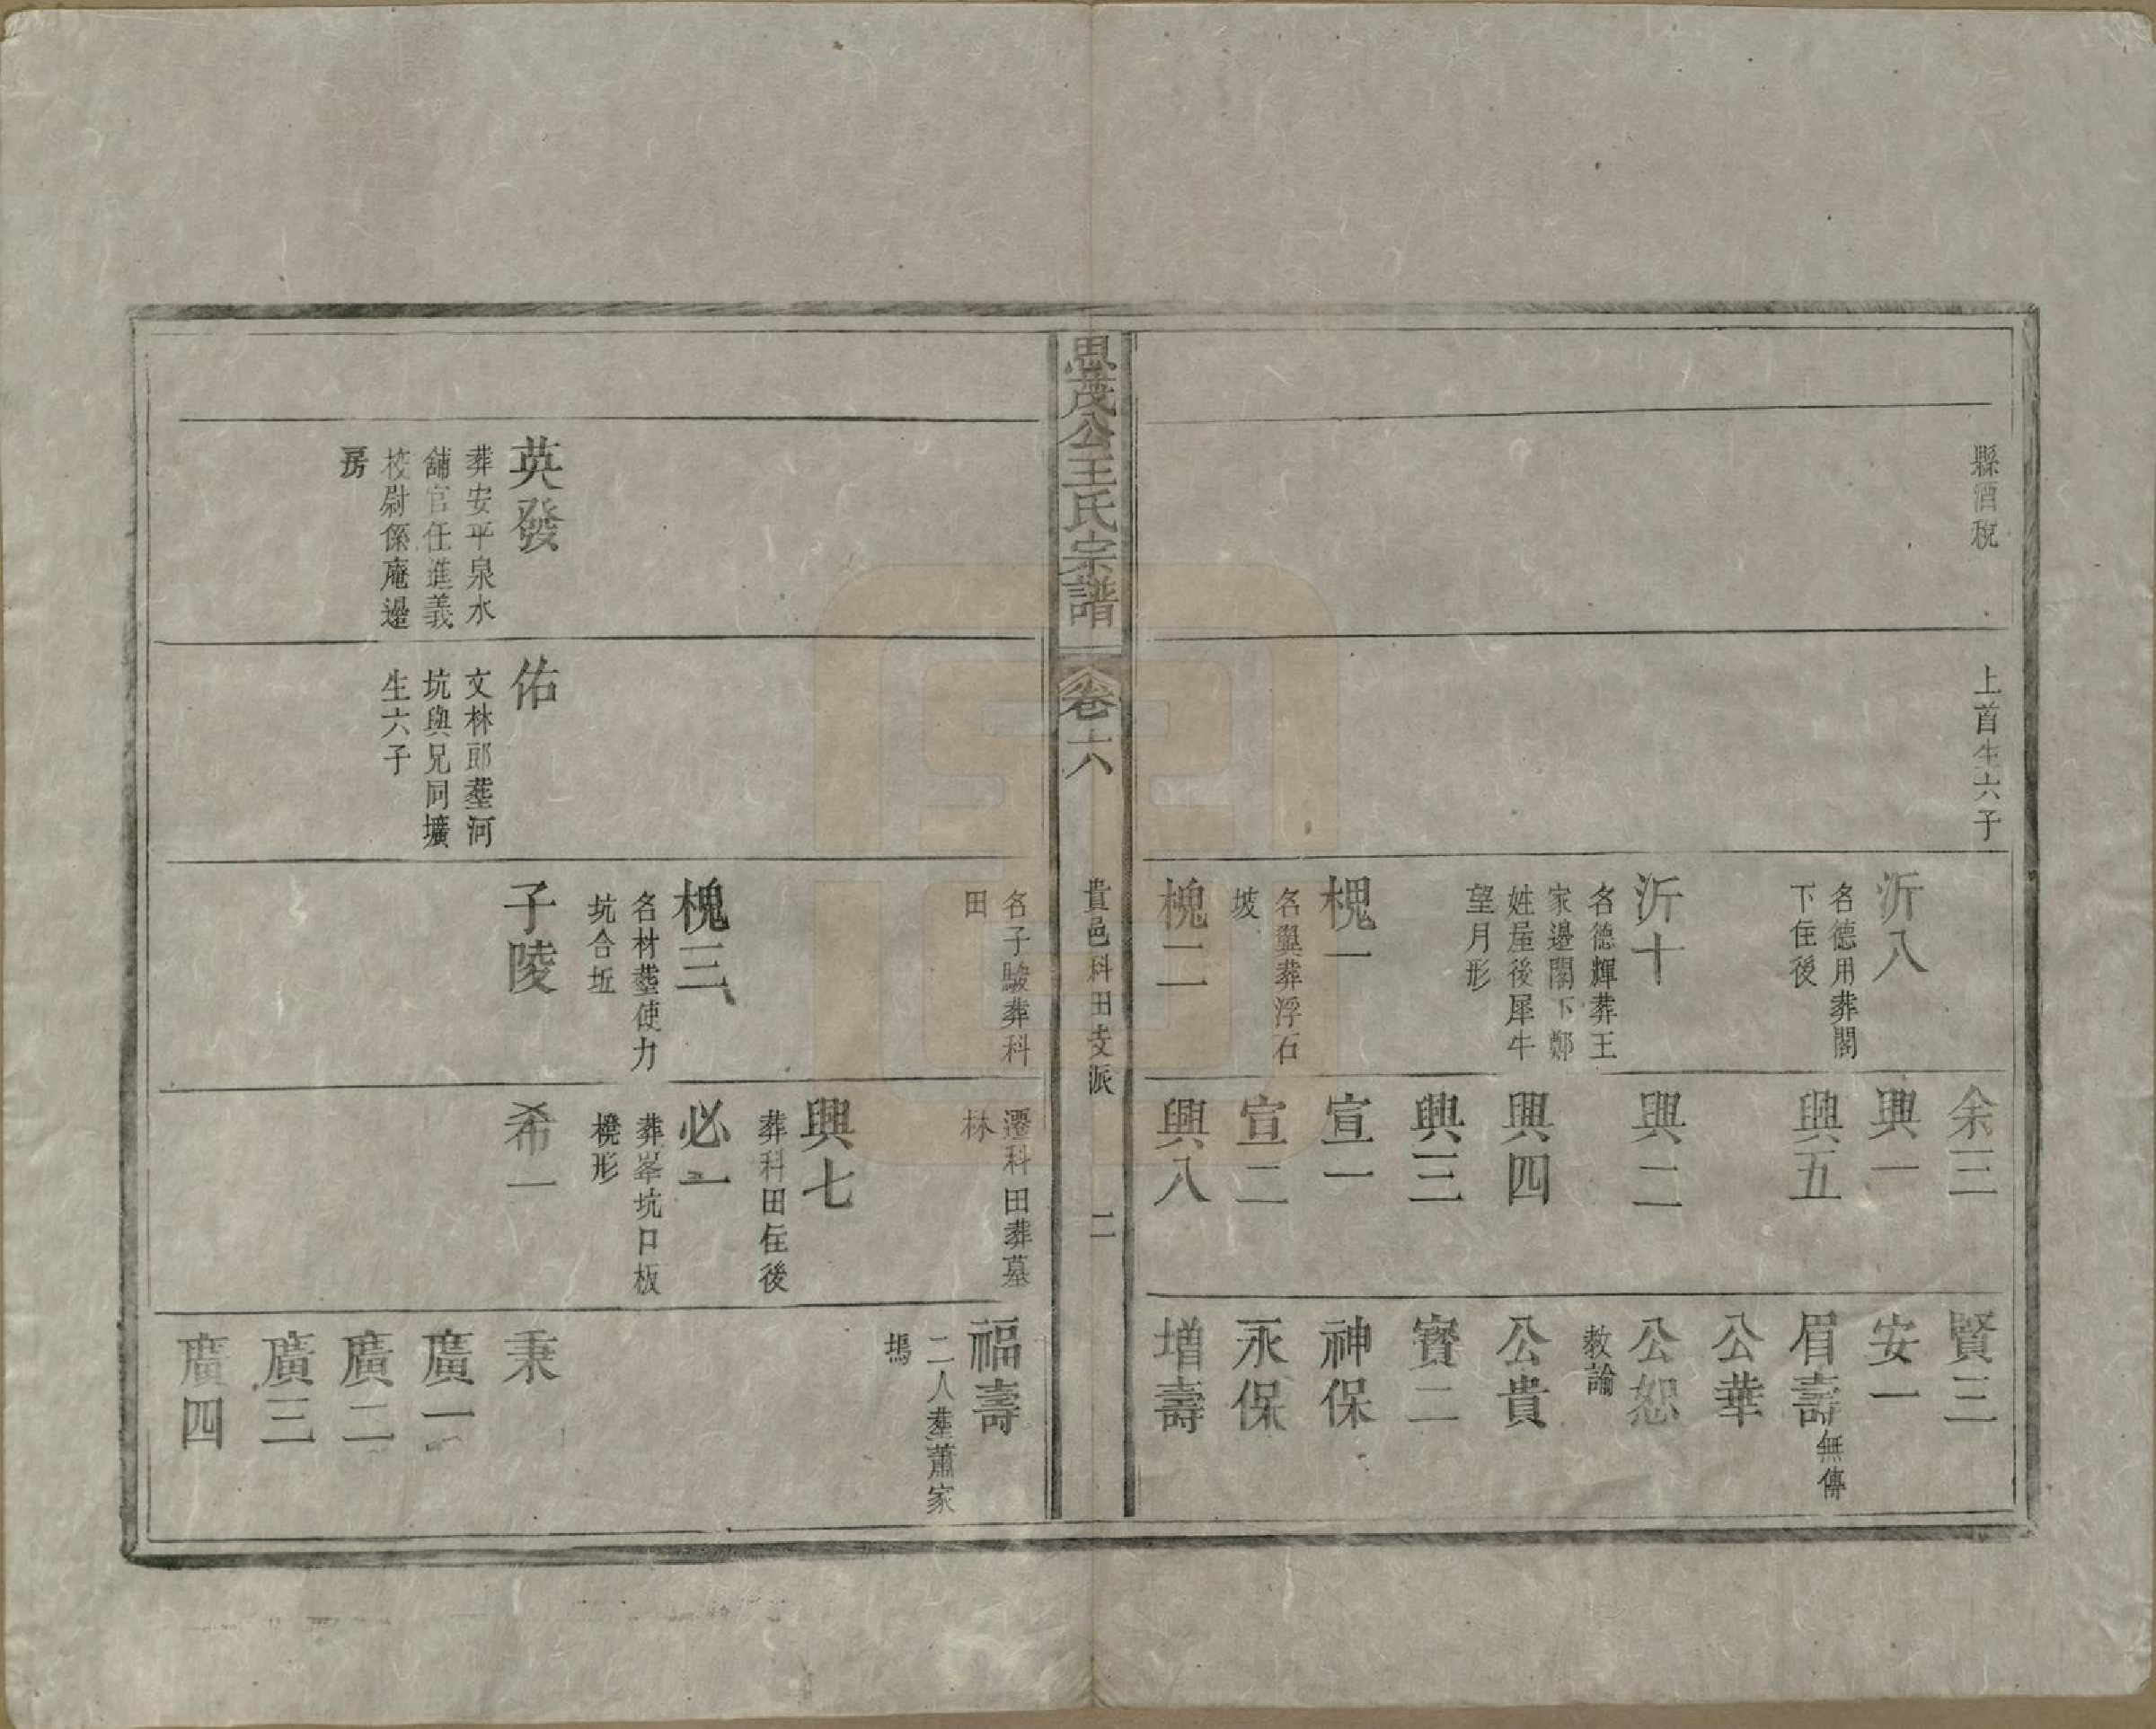 縣酒稅
上首生六子
沂八
名德用葬閣
下住後
沂十
名德輝葬王
家邊閣下鄭
姓屋後犀牛
望月形
槐一
名翼葬浮石
坡
槐二
余三
興一
興五
興二
興四
興三
宣一
宣二
興八
賢三
安一
眉壽無傳
公華
公恕
教諭
公貴
寳二
神保
永保
增壽
思茂公王氏宗譜
卷六
貴邑科田支派
二
英發
葬安平泉水
舖官任進義
校尉係庵邉
房
佑
文林郎塟河
坑與兄同壙
生六子
名子駿葬科
田
槐三
名材塟使力
坑合坵
子陵
遷科田葬墓
林
興七
葬科田住後
必一
葬峯坑口板
櫈形
希一
福壽
二人塟蕭家
塢
秉
廣一
廣二
廣三
廣四